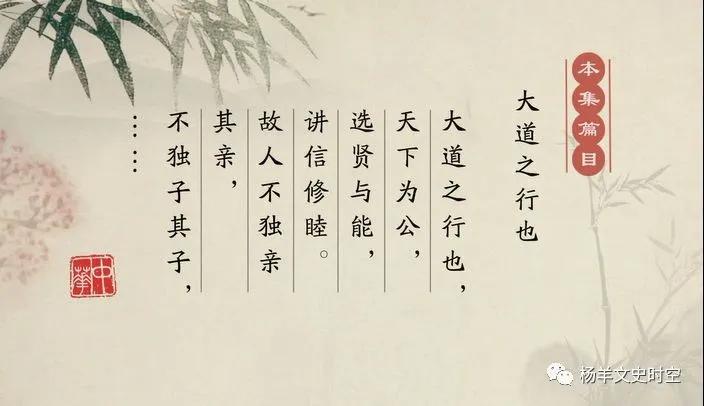 本集篇目
大道之行也
大道之行也，
天下为公，
选贤与能，
讲信修睦。
故人不独亲
其亲，
不独子其子，
……
中华
杨羊文史时空